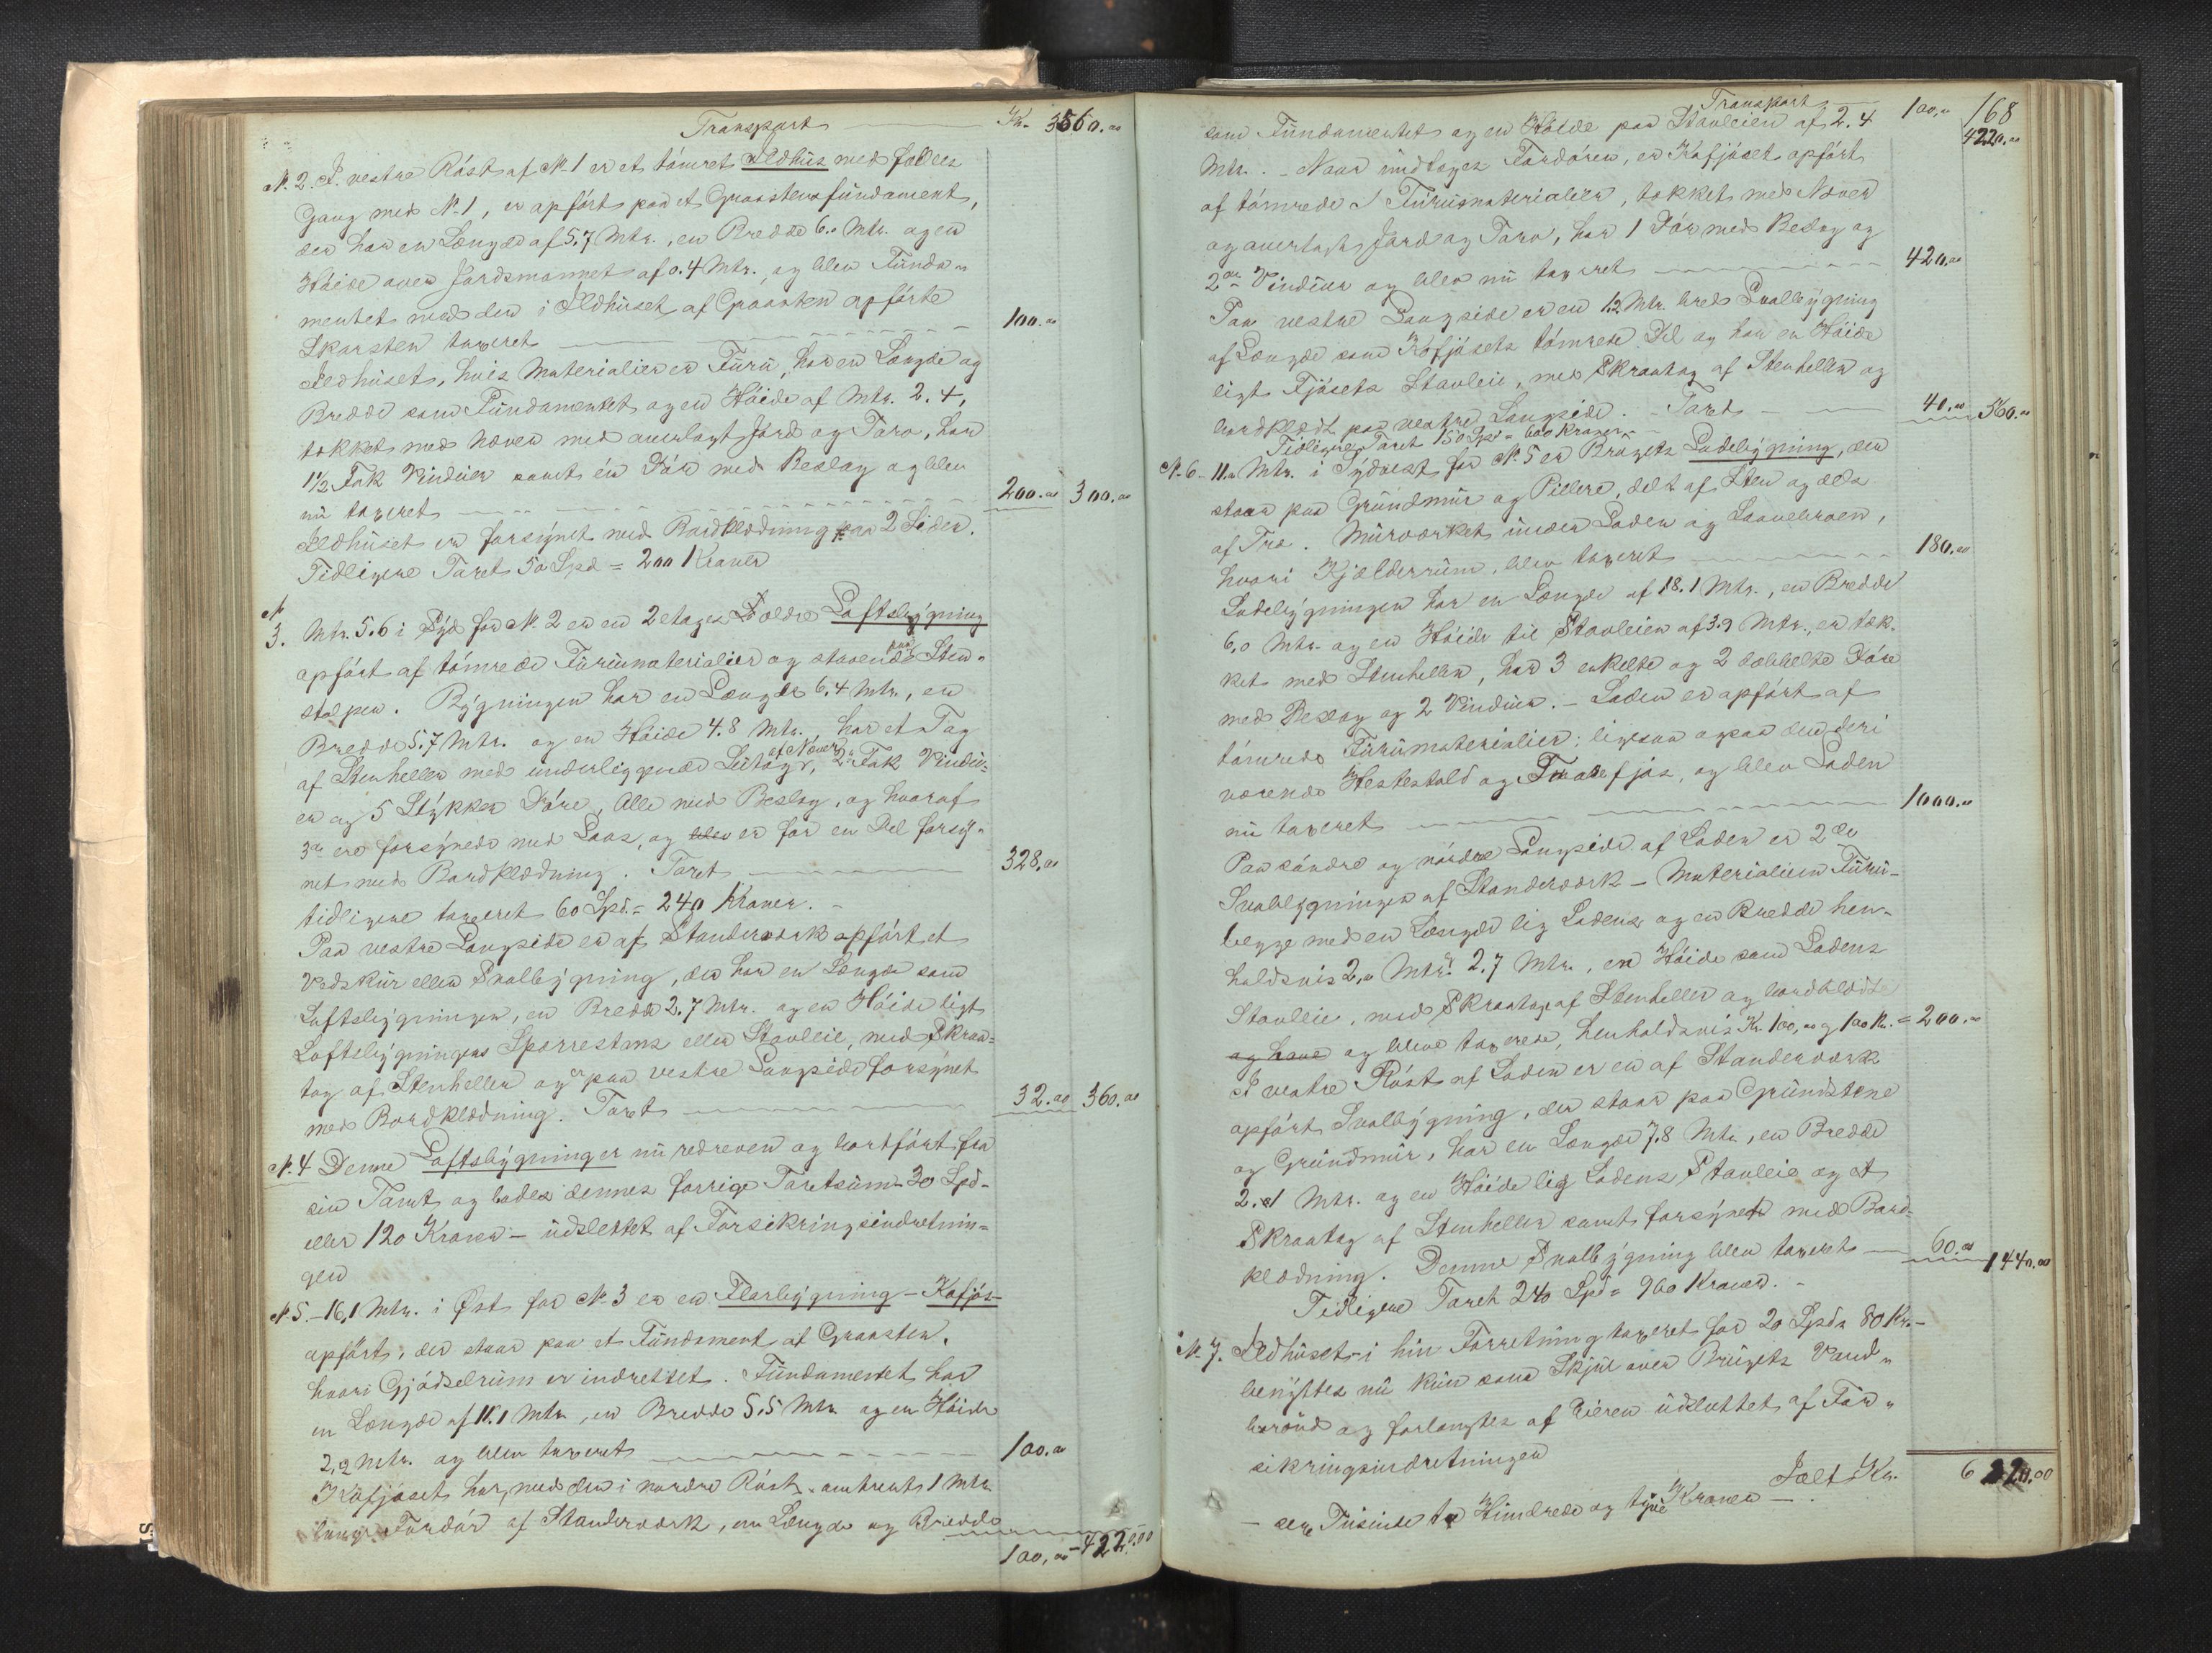 Transport Kr. 3560.00
N. 2. I vestre Röst af N. 1 er et tömret Ildhus med fælles
Gang med N. 1, er opfört paa et Graastensfundament,
der har en Længde af 5.7 Mtr., en Bredde 6.0 Mtr. og en
Höide over Jordsmonnet af 0.4 Mtr., og blev Funda-
mentet med den i Ildhuset af Graasten opförte
Skorsten taxeret 100.00
Ildhuset, hvis Materialier er Furu, har en Længde og
Bredde som Fundamentet og en Höide af Mtr. 2.4,
tækket med Næver med overlagt Jord og Torv, har
1½ Fak Vinduer samt én Dör med Beslag og blev
nu taxeret 200.00 300.00
Ildhuset er forsÿnet med Bordklædning paa 2 Sider.
Tidligere Taxt 50 Spd = 200 Kroner
N
3. Mtr. 5.6 i Sÿd for N. 2 er en 2 etages ældre Loftsbÿgning
opfört af tömrede Furumaterialier og staaende paa Sten-
stolper. Bÿgningen har en Længde 6.4 Mtr., en
Bredde 5.7 Mtr. og en Höide 4.8 Mtr., har et Tag
af Stenheller med underliggende Sutag af Næver, 2 Fak Vindu-
er og 5 Stÿkker Döre, Alle med Beslag, og hvoraf
3de ere forsÿnede med Laas, og blev er for en Del forsÿ-
net med Bordklædning. Taxt 328.00
tidligere taxeret 60 Spd. = 240 Kroner. -
Paa vestre Langside er af Standerværk opfört et
Vedskur eller Svalbÿgning, der har en Længde som
Loftsbÿgningen, en Bredde 2.7 Mtr. og en Höide ligt
Loftsbÿgningens Sperrestans eller Stavleie, med Skraa-
tag af Stenheller og er paa vestre Langside forsÿnet
med Bordklædning. Taxt 32.00 360.00
N. 4 Denne Loftsbÿgning er nu nedreven og bortfört fra
sin Tomt og bades dennes forrige Taxtsum 30 Spd-
eller 120 Kroner - udslettet af Forsikringsindretnin-
gen
N. 5. - 16,1 Mtr. i Øst for N. 3 er en Florbÿgning - Kofjös -
opfört, der staar paa et Fundament af Graasten,
hvori Gjödselrum er indrettet. Fundamentet har
en Længde af 11.1 Mtr., en Bredde 5,5 Mtr. og en Höide
2,2 Mtr. og blev taxeret 100.00
Kofjöset har, med den i nordre Röst omtrent 1 Mtr.
lange Fordör af Standerværk, en Længde og Bredde
100,00 - 4220.00
Transport 100,00 168
4220.00
som Fundamentet og en Höide paa Stavleien af 2.4
Mtr. - Naar undtages Fordören, er Kofjöset opfört
af tömrede Furumaterialier, tækket med Næver
og overlagt Jord og Torv, har 1 Dör med Beslag og
2de Vinduer og blev nu taxeret 420.00
Paa vestre Langside er en 1.2 Mtr. bred Svalbÿgning
af Længde som Kofjösets tömrede Del og har en Höide
ligt Fjösets Stavleie, med Skraatag af Stenheller og
bordklædt paa vestre Langside. - Taxt 40.00 560.00
Tidligere Taxt 150 Spd = 600 Kroner. -
N. 6. 11.0 Mtr. i Sÿdvest for N. 5 er Brugets Ladebÿgning, der
staar paa Grundmur og Pillere, dels af Sten og dels
af Træ. Murværket under Laden og Laavebroen,
hvori Kjælderrum, blev taxeret 180.00
Ladebÿgningen har en Længde af 18.1 Mtr., en Bredde
6,0 Mtr. og en Höide til Stavleien af 3.9 Mtr., er tæk-
ket med Stenheller, har 3 enkelte og 2 dobbelte Döre
med Beslag og 2 Vinduer. - Laden er opfört af
tömrede Furumaterialier; ligesaa ogsaa den deri
værende Hestestald og fjös, og blev Laden
nu taxeret 1000.00
Paa söndre og nördre Langside af Laden er 2de
Svalbÿgninger af Standerværk - Materialier Furu -
begge med en Længde lig Ladens og en Bredde hen-
holdsvis 2,0 Mtr. 2,7 Mtr., en Höide som Ladens
Stavleie, med Skraatage af Stenheller og bordklædte
og have og bleve taxerede, henholdsvis Kr. 100,00 og 100 Kr. = 200.00
I vestre Röst af Laden er en af Standerværk
opfört Svalbÿgning, der staar paa Grundstene
og Grundmur, har en Længde 7.8 Mtr., en Bredde
2.1 Mtr. og en Höide lig Ladens Stavleie og et
Skraatag af Stenheller samt forsÿnet med Bord-
klædning. Denne Svalbÿgning blev taxeret 60.00 1440.00
Tidligere Taxt 240 Spd = 960 Kroner. -
N. 7. Ildhuset i hin Forretning taxeret for 20 Spd = 80 Kr. -
benÿttes nu kun som Skjul over Brugets Vand-
brönd og forlangtes af Eieren udslettet af For-
sikringsindretningen
Ialt Kr. 6220.00
- sex Tusinde to Hundrede og tÿve Kroner -